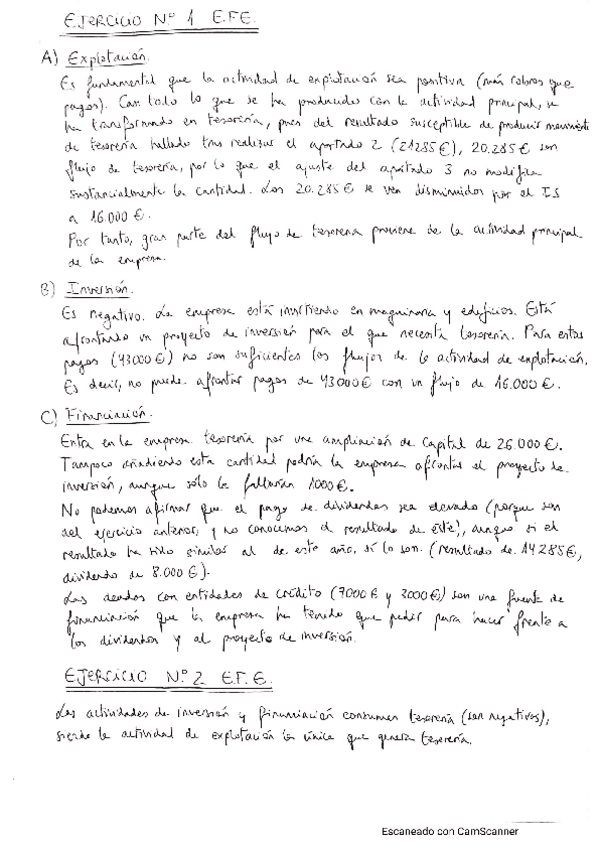 EJERCICIO Nº 1 E.F.E.
A) Explotación.
Es fundamental que la actividad de explotación sea positiva (más cobros que
pagos). Casi todo lo que se ha producido con la actividad principal, se
ha transformado en tesorería, pues del resultado susceptible de producir movimiento
de tesorería hallado tras realizar el apartado 2 (21285 €), 20.285 € son
flujo de tesorería, por lo que el ajuste del apartado 3 no modifica
sustancialmente la cantidad. Los 20.285 € se ven disminuidos por el IS
a 16.000 €.
Por tanto, gran parte del flujo de tesorería proviene de la actividad principal
de la empresa.
B) Inversión.
Es negativo. La empresa está invirtiendo en maquinaria y edificios. Está
afrontando un proyecto de inversión para el que necesita tesorería. Para estos
pagos (43000 €) no son suficientes los flujos de la actividad de explotación.
Es decir, no puede afrontar pagos de 43000 € con un flujo de 16.000 €.
C) Financiación.
Entra en la empresa tesorería por una ampliación de capital de 26.000 €.
Tampoco añadiendo esta cantidad podría la empresa afrontar el proyecto de
inversión, aunque sólo le faltarían 1000 €.
No podemos afirmar que el pago de dividendos sea elevado (porque son
del ejercicio anterior, y no conocemos el resultado de éste), aunque si el
resultado ha sido similar al de este año, sí lo son. (resultado de 14285 €,
dividendo de 8.000 €).
Las deudas con entidades de crédito (7000 € y 3000 €) son una fuente de
financiación que la empresa ha tenido que pedir para hacer frente a
los dividendos y al proyecto de inversión.
EJERCICIO Nº 2 E.F.E.
Las actividades de inversión y financiación consumen tesorería (son negativos),
siendo la actividad de explotación la única que genera tesorería.
Escaneado con CamScanner